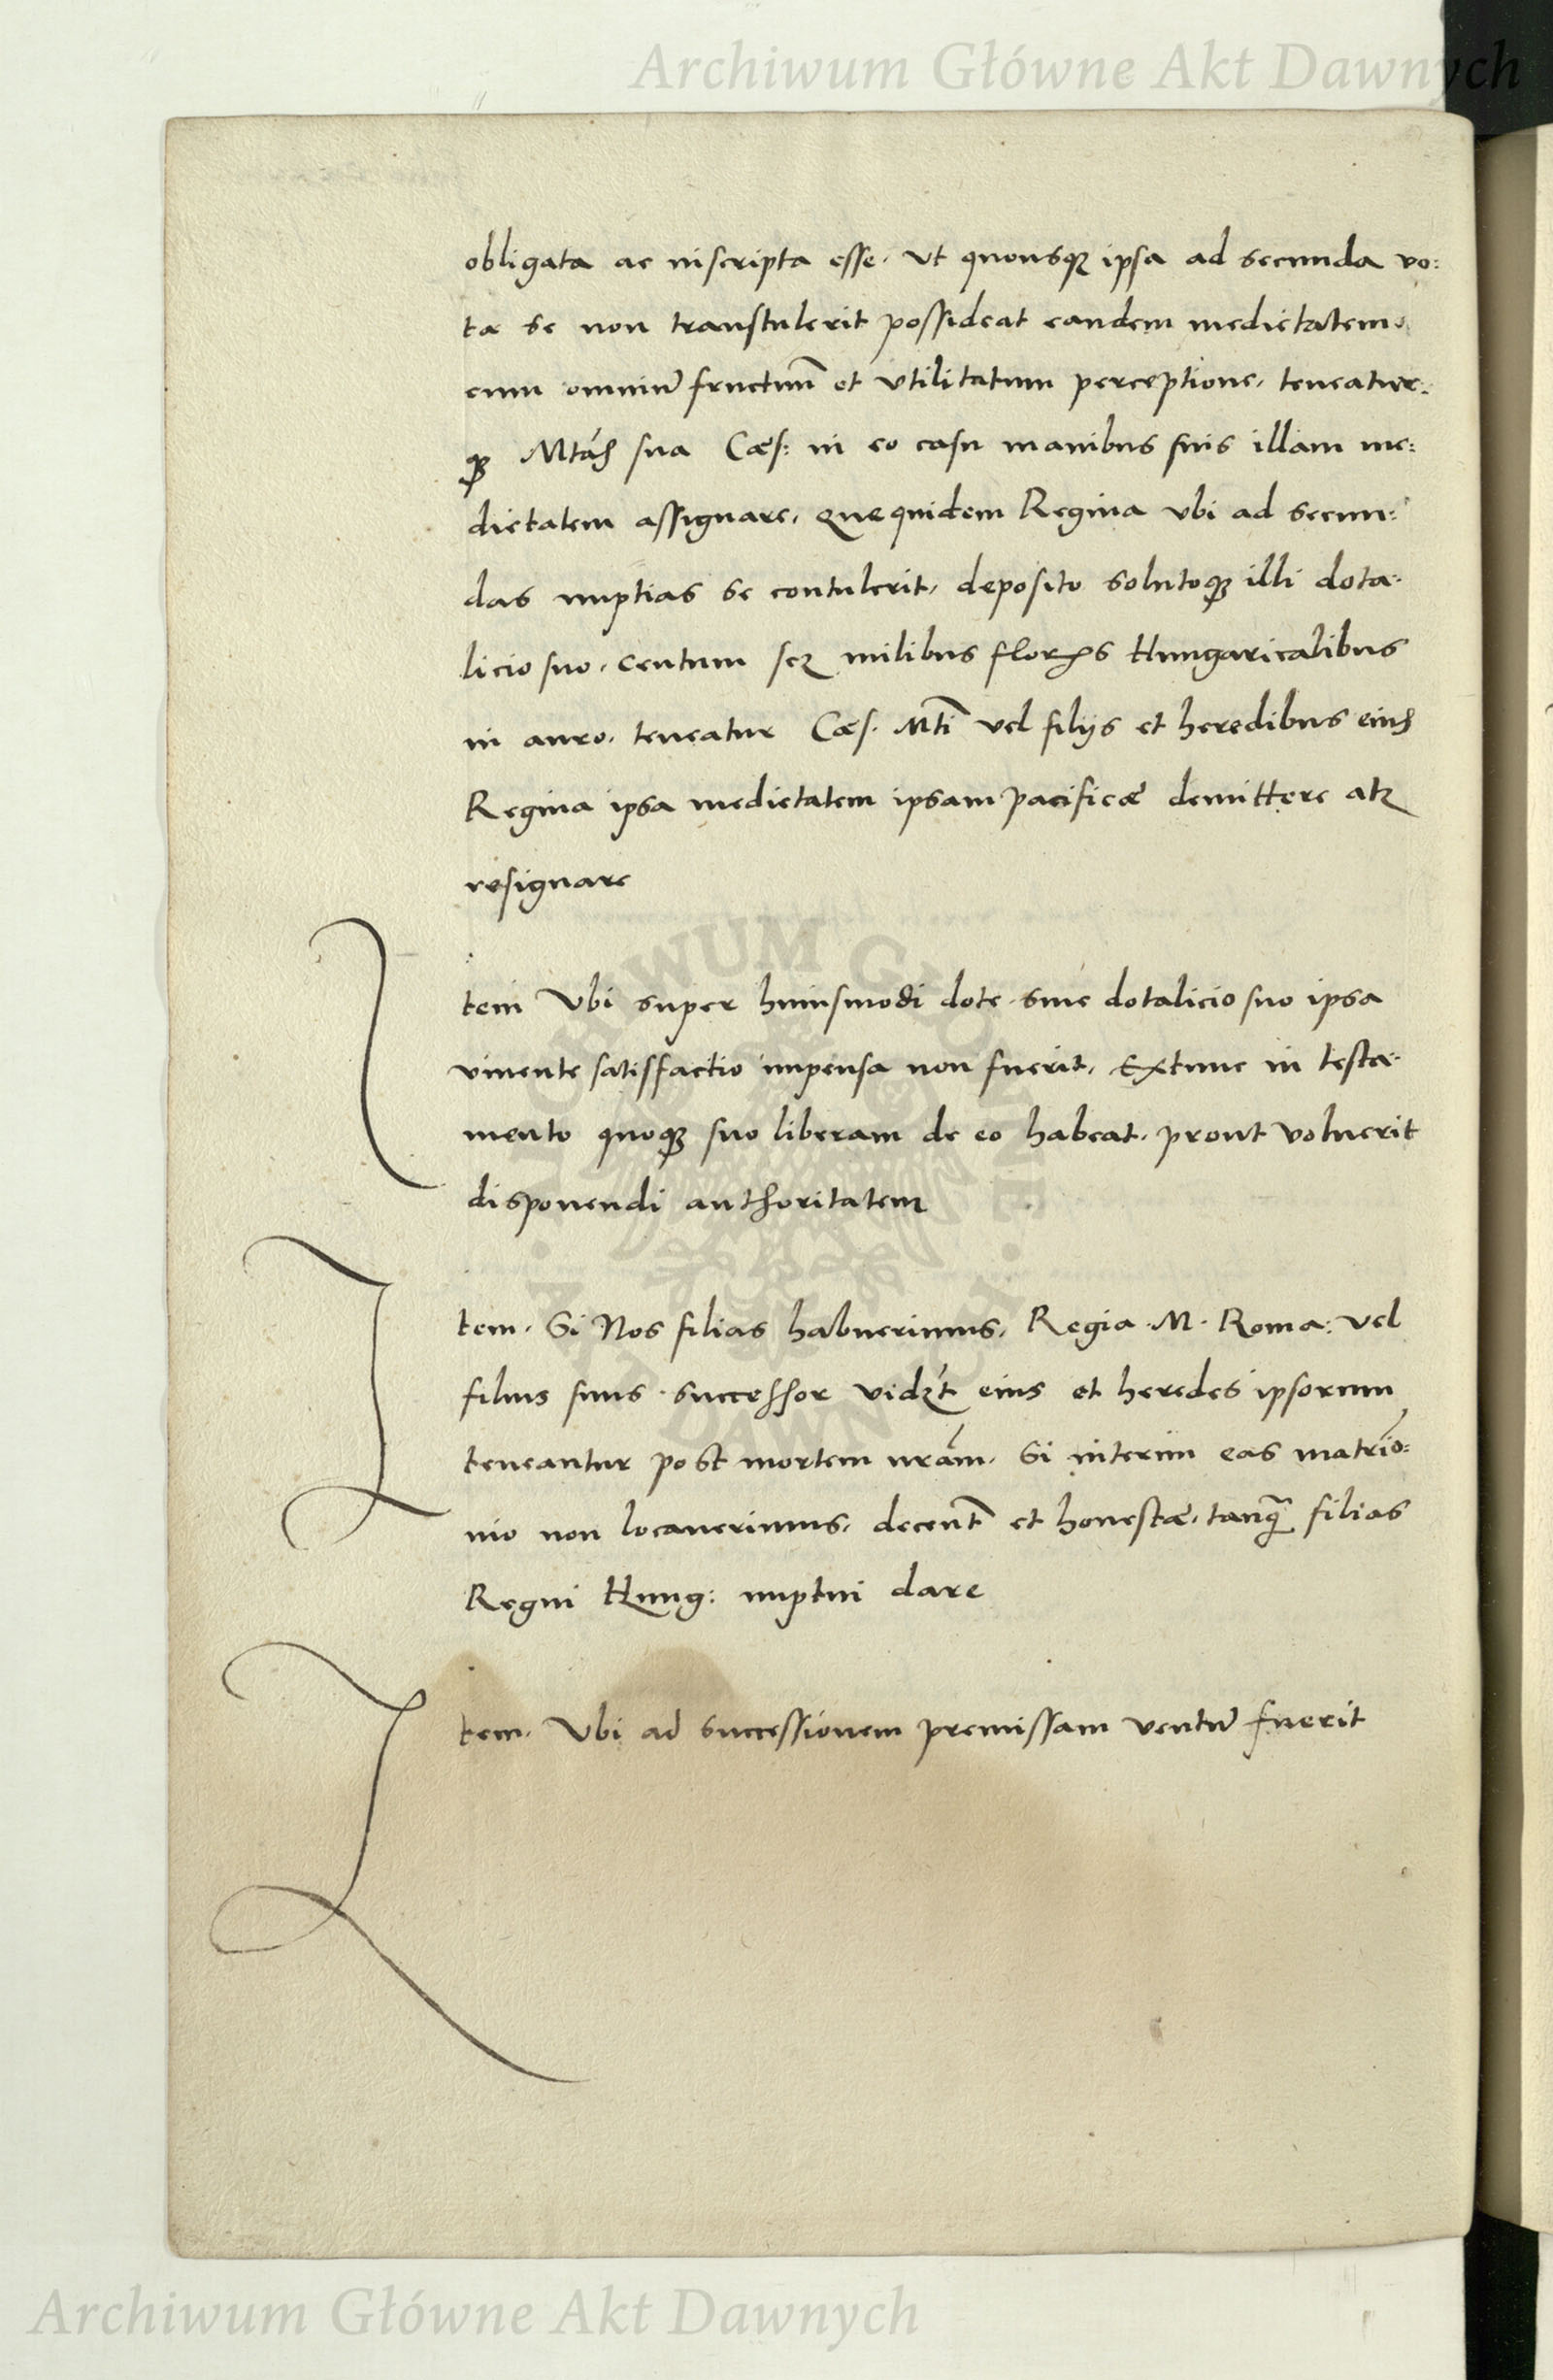 Archiwum Główne Akt Dawnych
obligata ac inscripta esse. Ut quousq3 ipsa ad secunda vo:
ta se non transtulerit possideat eandem medietatem
cum omniū fructuū et utilitatum perceptione, teneatur:
q3 Mtás sua Cæs: in eo casu manibus suis illam me:
dietatem assignare, Que quidem Regina ubi ad secun:
das nuptias se contulerit, deposito solutoq3 illi dota-
licio suo, Centum scz milibus Hungaricalibus
in auro, teneatur Cæs. Mti vel filijs et heredibus eius
Regina ipsa medietatem ipsam pacificæ demittere atz
resignare
Item Ubi super huiusmodi dote sive dotalicio suo ipsa
vivente satisffactio impensa non fuerit, Extunc in testa-
mento quoq3 suo liberam de eo habeat, prout voluerit
disponendi authoritatem
Item. Si Nos filias habuerimus, Regia M. Roma: vel
filius suus successor eius et heredes ipsorum
teneantur post mortem nrām, Si interim eas matrīo:
nio non locaverimus, decent̄ et honestæ, tanq̄ filias
Regni Hung: nuptui dare
Item. Ubi ad successionem premissam ventū fuerit
ARCHIWUM GŁÓWNE AKT DAWNYCH
Archiwum Główne Akt Dawnych